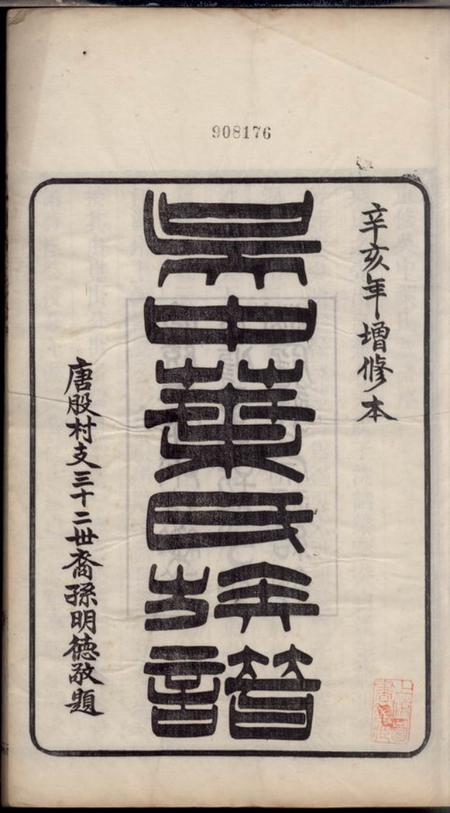 908176
辛亥年增修本
吳中葉氏族譜
唐股村支三十二世裔孫明德敬題